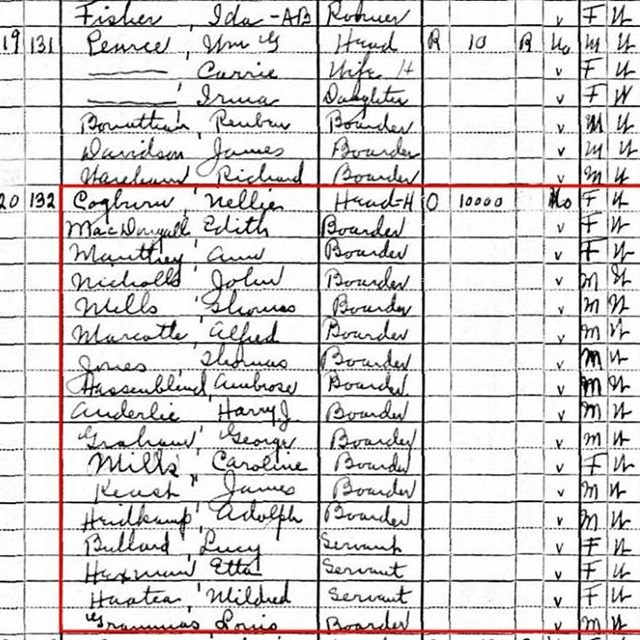 Fisher, Ida -AB Roomer v F W
19 131 Pearce, Wm G Head R 10 R No M W
——— Carrie Wife H v F W
———, Irma Daughter v F W
Reuben Boarder v M W
Davidson James Boarder v M W
Richard Boarder v M W
20 132 Cogburn, Nellie Head-H O 10000 No F W
MacDougall Edith Boarder v F W
Manthey, Ann Boarder v F W
Nicholls, John Boarder v M W
Mills, Thomas Boarder v M W
Marcotte, Alfred Boarder v M W
Jones, Thomas Boarder v M W
Hassenblind, Ambrose Boarder v M W
Anderlie, Harry J. Boarder v M W
Graham, George Boarder v M W
Mills, Caroline Boarder v F W
James Boarder v M W
Heidkamp, Adolph Boarder v M W
Bullard, Lucy Servant v F W
Etta Servant v F W
Mildred Servant v F W
Louis Boarder v M W